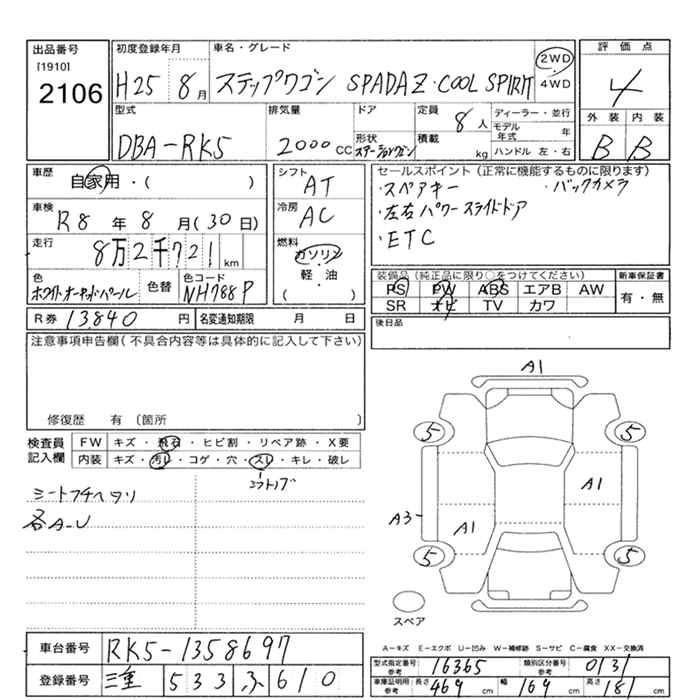 出品番号
[1910]
2106
初度登録年月
H25 8月
車名・グレード
ステップワゴン SPADA Z・COOL SPIRIT
2WD
4WD
評価点
4
外装 内装
B B
型式
DBA-RK5
排気量
2000 CC
ドア
形状
定員
8人
積載
kg
ディーラー・並行
モデル年式 年
ハンドル 左・右
車歴
自家用・( )
車検
R8年8月(30日)
走行
8万2千721km
色
ホワイトオーキッドパール
色替
色コード
NH788P
シフト
AT
冷房
AC
燃料
ガソリン
軽・油
( )
セールスポイント (正常に機能するものに限ります)
・スペアキー ・バックカメラ
・左右パワースライドドア
・ETC
装備品(純正品に限り○をつけてください)
PS PW ABS エアB AW
SR ナビ TV カワ
新車保証書
有・無
R券 13840円
名変通知期限 月 日
後日品
注意事項申告欄(不具合内容等は具体的に記入して下さい)
修復歴 有 〔箇所 〕
検査員記入欄
FW キズ・飛石・ヒビ割・リペア跡・X要
内装 キズ・汚レ・コゲ・穴・スレ・キレ・破レ
シートフチヘタリ
各A-U
A1
5 5
A1
A3
A1
5 5
スペア
A―キズ E―エクボ U―凹み W―補修跡 S―サビ C―腐食 XX―交換済
車台番号 RK5-1358697
登録番号 三重 533 ふ 610
型式指定番号 参考 16365
類別区分番号 参考 0131
車庫証明用 参考 長さ 469 cm 幅 169 cm 高さ 181 cm